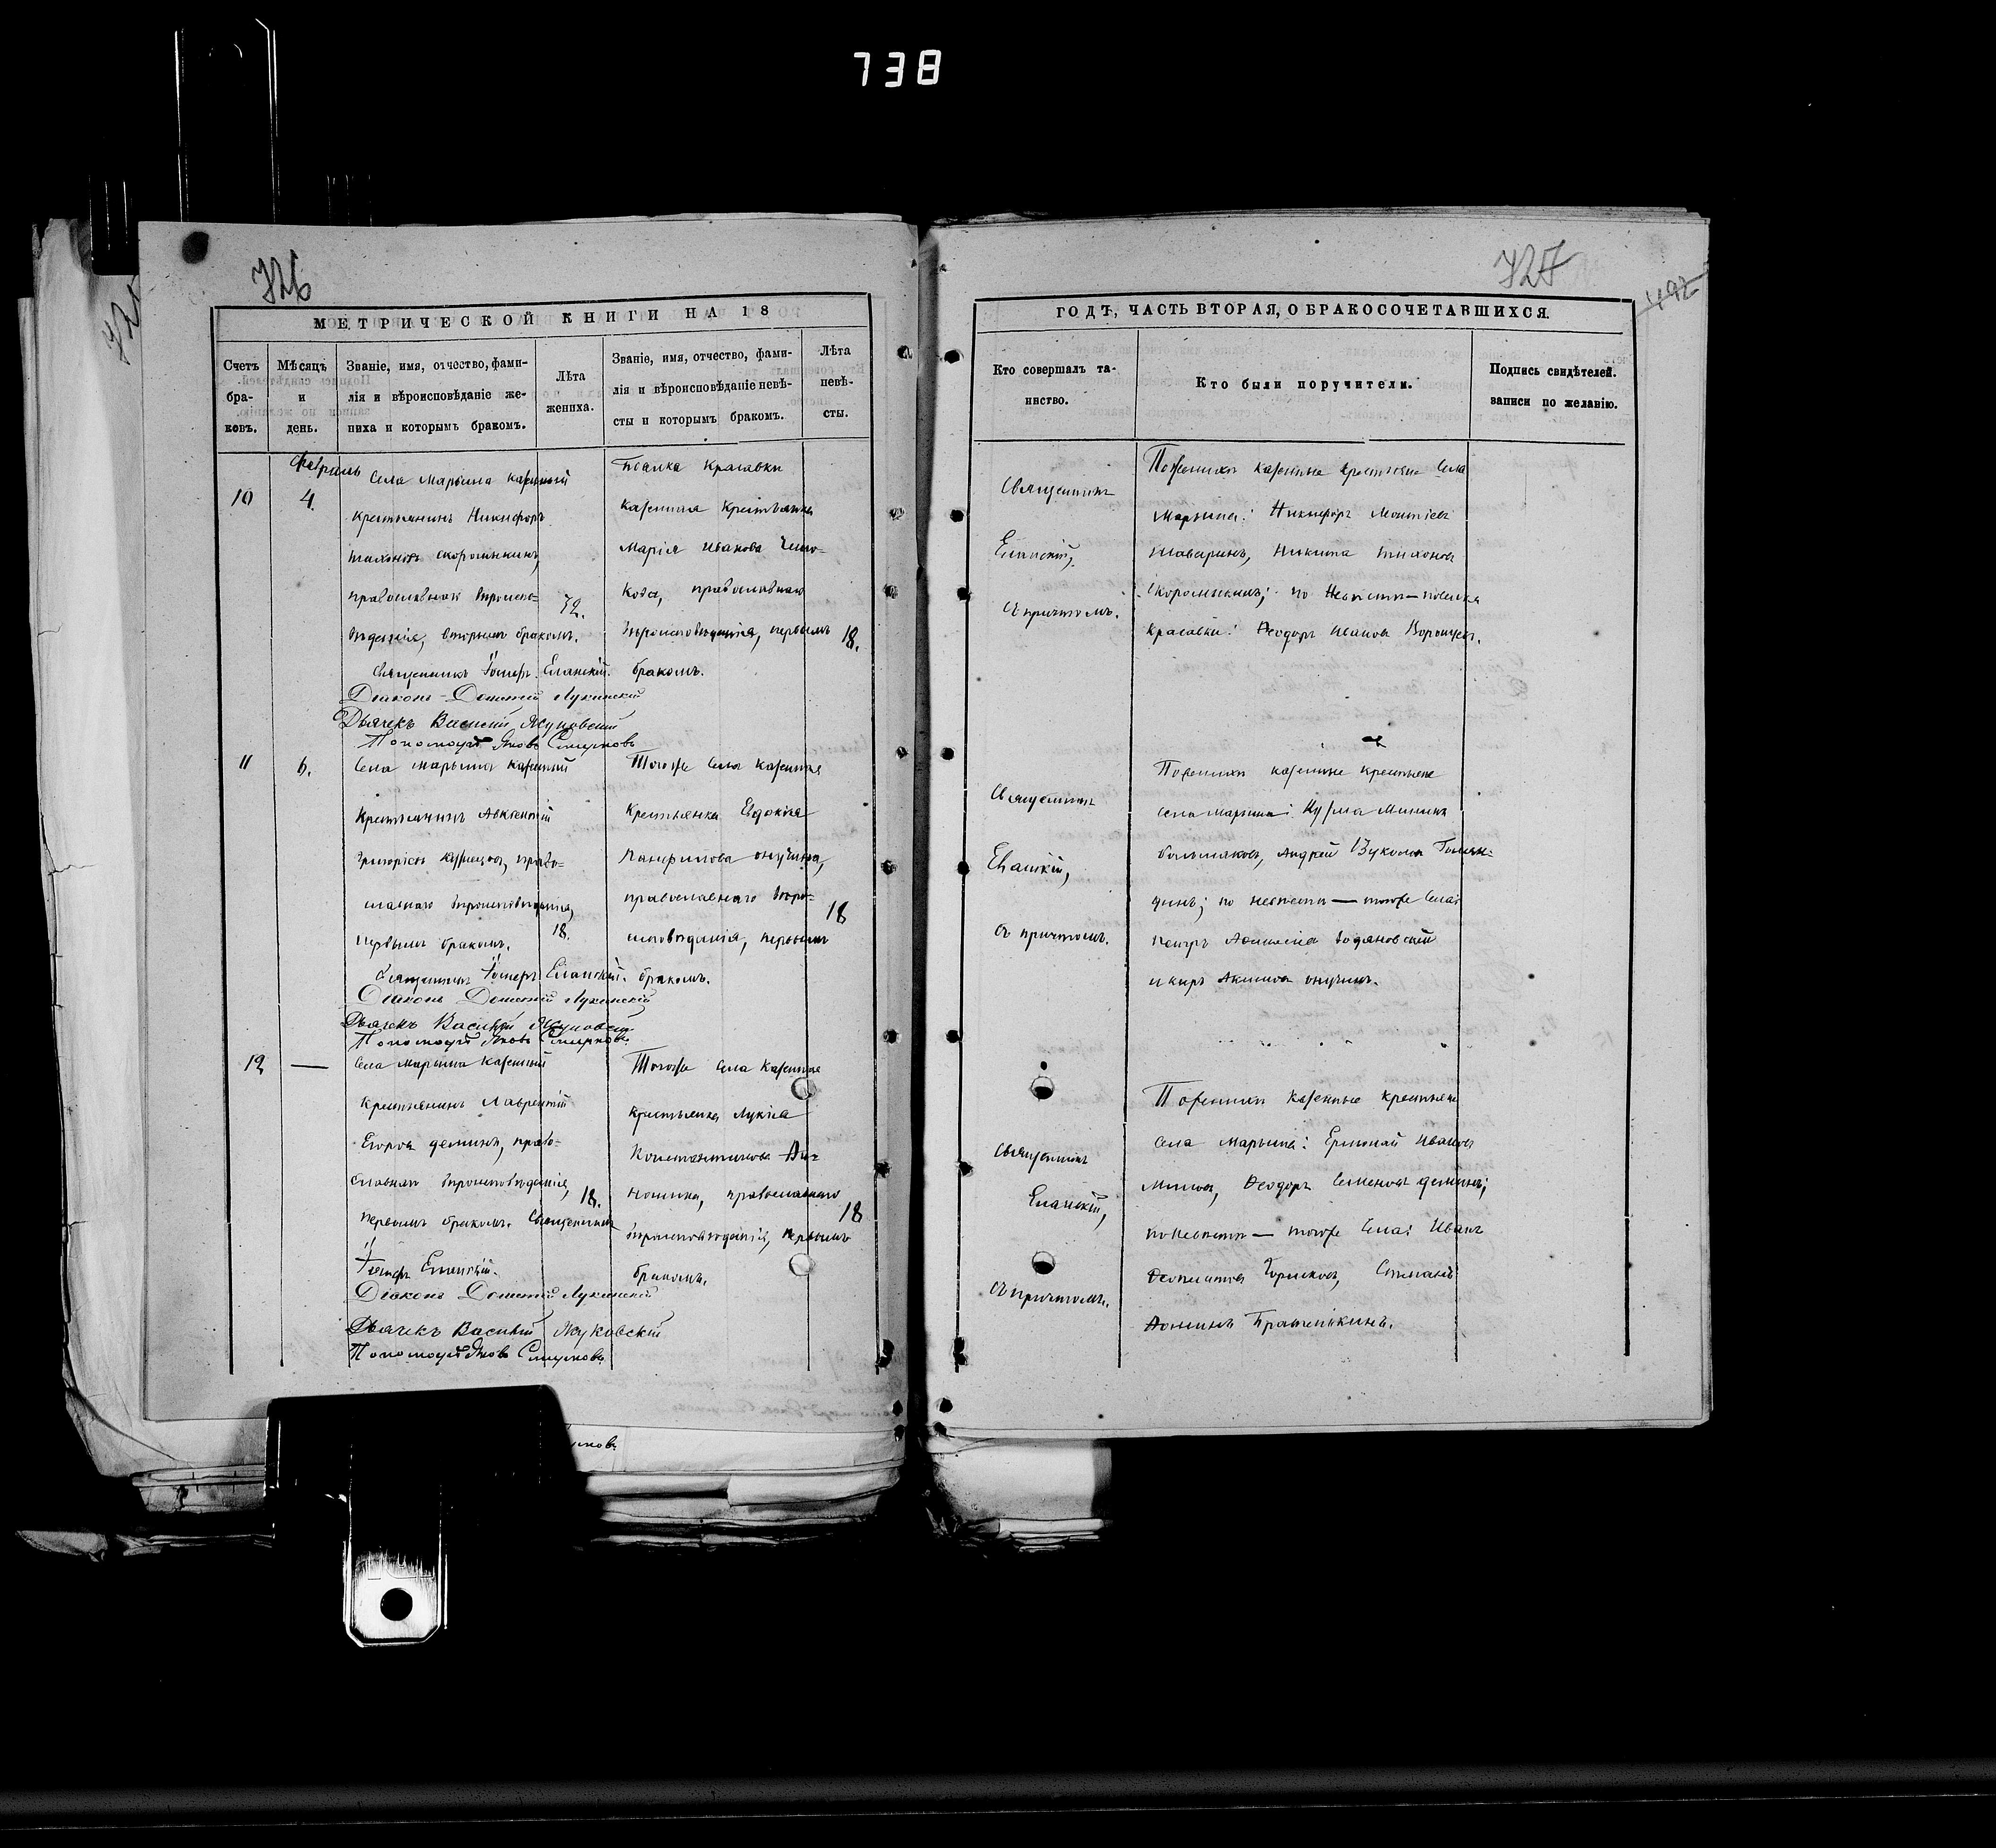 738
726
МЕТРИЧЕСКОЙ КНИГИ НА 18
Счетъ бра-ковъ.
Мѣсяцъ и день.
Званіе, имя, отчество, фами-
лія и вѣроисповѣданіе же-
ниха и которымъ бракомъ.
Лѣта жениха.
Званіе, имя, отчество, фами-
лія и вѣроисповѣданіе невѣ-
сты и которымъ бракомъ.
Лѣта невѣ-сты.
10
Февраль
4.
Села Марьина казенный
крестьянинъ Никифоръ
Тихоновъ Скоромнкинъ,
православнаго вѣроиспо-
вѣданія, вторымъ бракомъ.
Священникъ Еланскій.
Діаконъ Лукинскій
Дьячекъ Василій Жуковскій
Пономарь Яковъ Смирновъ
Поселка Красавки
казенная крестьянка
Марія Иванова
православнаго
вѣроисповѣданія, первымъ
бракомъ.
18.
11
6.
Села Марьина казенный
крестьянинъ Авксентій
Григорьевъ Кузнецовъ, право-
славнаго вѣроисповѣданія,
первымъ бракомъ.
18.
Священникъ Еланскій.
Діаконъ Лукинскій
Дьячекъ Василій Жуковскій
Пономарь Яковъ Смирновъ
Тогоже села казенная
крестьянка Евдокія
Панфилова Онучина,
православнаго вѣро-
исповѣданія, первымъ
бракомъ.
18
12
—
Села Марьина казенный
крестьянинъ Лаврентій
Егоровъ Деминъ, право-
славнаго вѣроисповѣданія,
первымъ бракомъ. Священникъ
18.
Еланскій.
Діаконъ Лукинскій
Дьячекъ Василій Жуковскій
Пономарь Яковъ Смирновъ
Тогоже села казенная
крестьянка Лукія
Константинова
православнаго
вѣроисповѣданія, первымъ
бракомъ.
18
727
492
ГОДЪ, ЧАСТЬ ВТОРАЯ, О БРАКОСОЧЕТАВШИХСЯ.
Кто совершалъ та-
инство.
Кто были поручители.
Подпись свидѣтелей.
записи по желанію.
Священникъ
Еланскій,
съ причтомъ.
По женихѣ казенные крестьяне села
Марьина: Никифоръ
Никита Тихоновъ
по невѣстѣ — поселка
Красавки: Ѳеодоръ Ивановъ
Священникъ
Еланскій,
съ причтомъ.
По женихѣ казенные крестьяне
села Марьина: Кузма Мининъ
Большаковъ, Андрей Вуколовъ
по невѣстѣ — тогоже села:
Петръ
и Киръ Акимовъ Онучинъ.
Священникъ
Еланскій,
съ причтомъ.
По женихѣ казенные крестьяне
села Марьина: Ермолай Ивановъ
Ѳеодоръ Семеновъ Деминъ;
по невѣстѣ — тогоже села: Иванъ
Горшковъ, Степанъ
Братенькинъ.